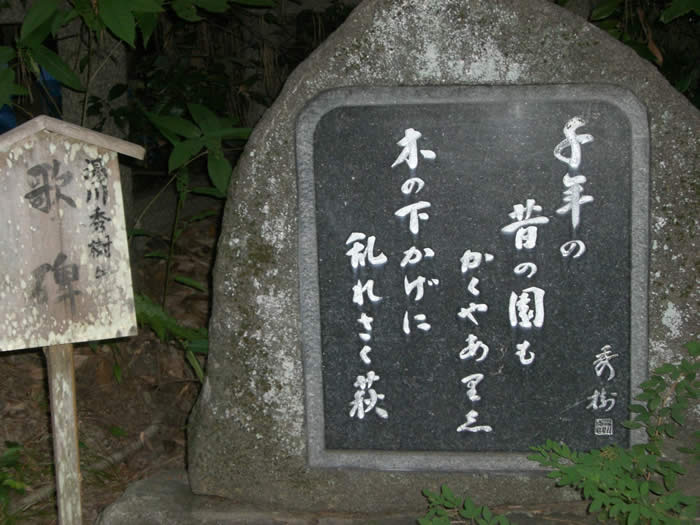 千年の
昔の園も
かくやありし
木の下かげに
乱れさく萩
秀樹
湯川秀樹の
歌碑